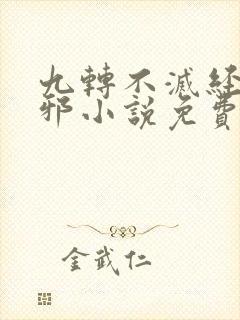 九轉不滅經
邪小說免費
金武仁